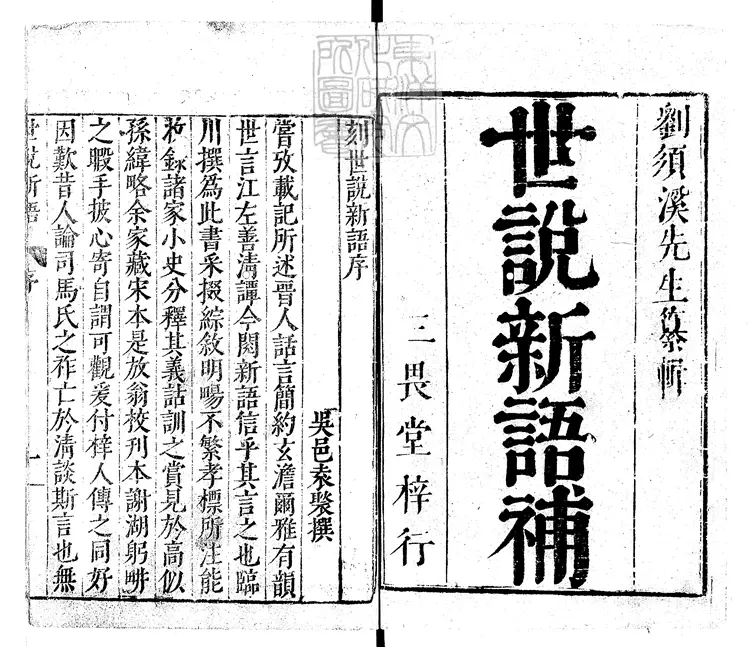 劉須溪先生纂輯
世說新語補
三畏堂梓行
刻世說新語序
吳邑袁褧撰
嘗攷載記所述晉人話言簡約玄澹爾雅有韻
世言江左善清譚今閱新語信乎其言之也臨
川撰為此書采掇綜敘明暢不繁孝標所注能
收錄諸家小史分釋其義詁訓之賞見於高似
孫緯略余家藏宋本是放翁校刊本謝湖躬畊
之暇手披心寄自謂可觀爰付梓人傳之同好
因歎昔人論司馬氏之祚亡於清談斯言也無
世說新語 序 一